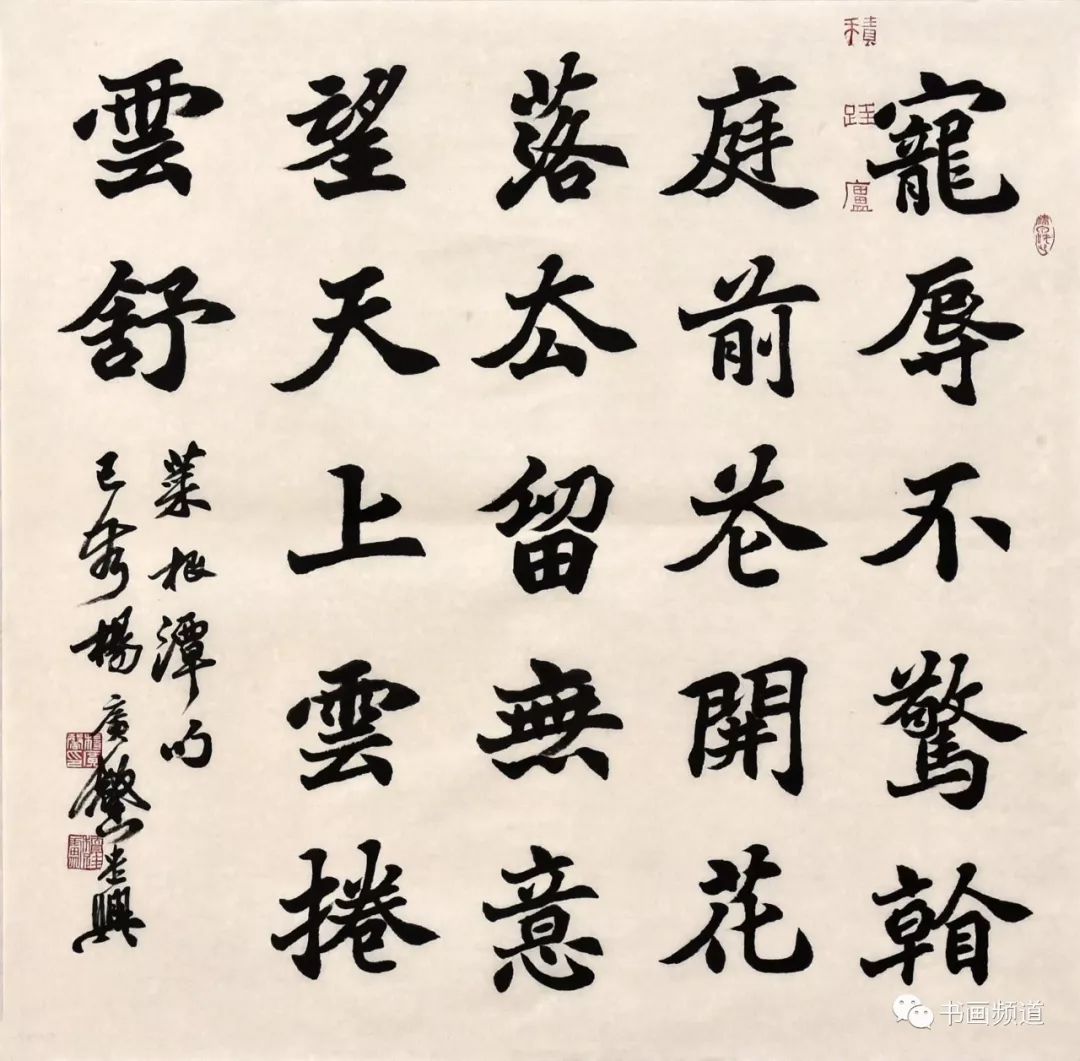 積跬廬
寵辱不驚看
庭前花開花
落去留無意
望天上雲捲
雲舒
菜根潭句
己亥楊廣馨
书画频道